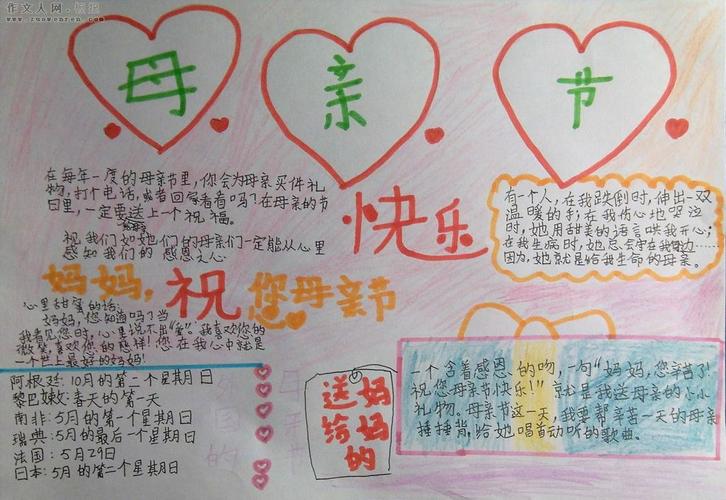 作文人网·标记
www.zuowenren.com
母 亲 节
在每年一度的母亲节里,你会为母亲买件礼
物,打个电话,或者回等看看吗?在母亲的节
日里,一定要送上一个祝福。
祝我们如她们的母亲们一定能从心里
感知我们的感恩之心
快乐
有一个人,在我跌倒时,伸出一双
温暖的手;在我伤心地哭泣
时,她用甜美的语言哄我开心;
在我生病时,她总会守在我身边……
因为,她就是给我生命的母亲。
妈妈,祝您母亲节
心里甜蜜的话:
妈妈,您知道吗?当
我看见您时,心里说不出"爱"。我喜欢您的
微笑,喜欢您的慈祥!您在我心中就是
一个世上最好的妈妈!
阿根廷:10月的第二个星期日
黎巴嫩:春天的第一天
南非:5月的第一个星期日
瑞典:5月的最后一个星期日
法国:5月29日
日本:5月的第二个星期日
送给妈妈的
一个含着感恩的吻,一句"妈妈,您辛苦了!
祝您母亲节快乐!"就是我送母亲的小小
礼物。母亲节这一天,我要帮辛苦一天的母亲
捶捶背,给她唱首动听的歌曲。